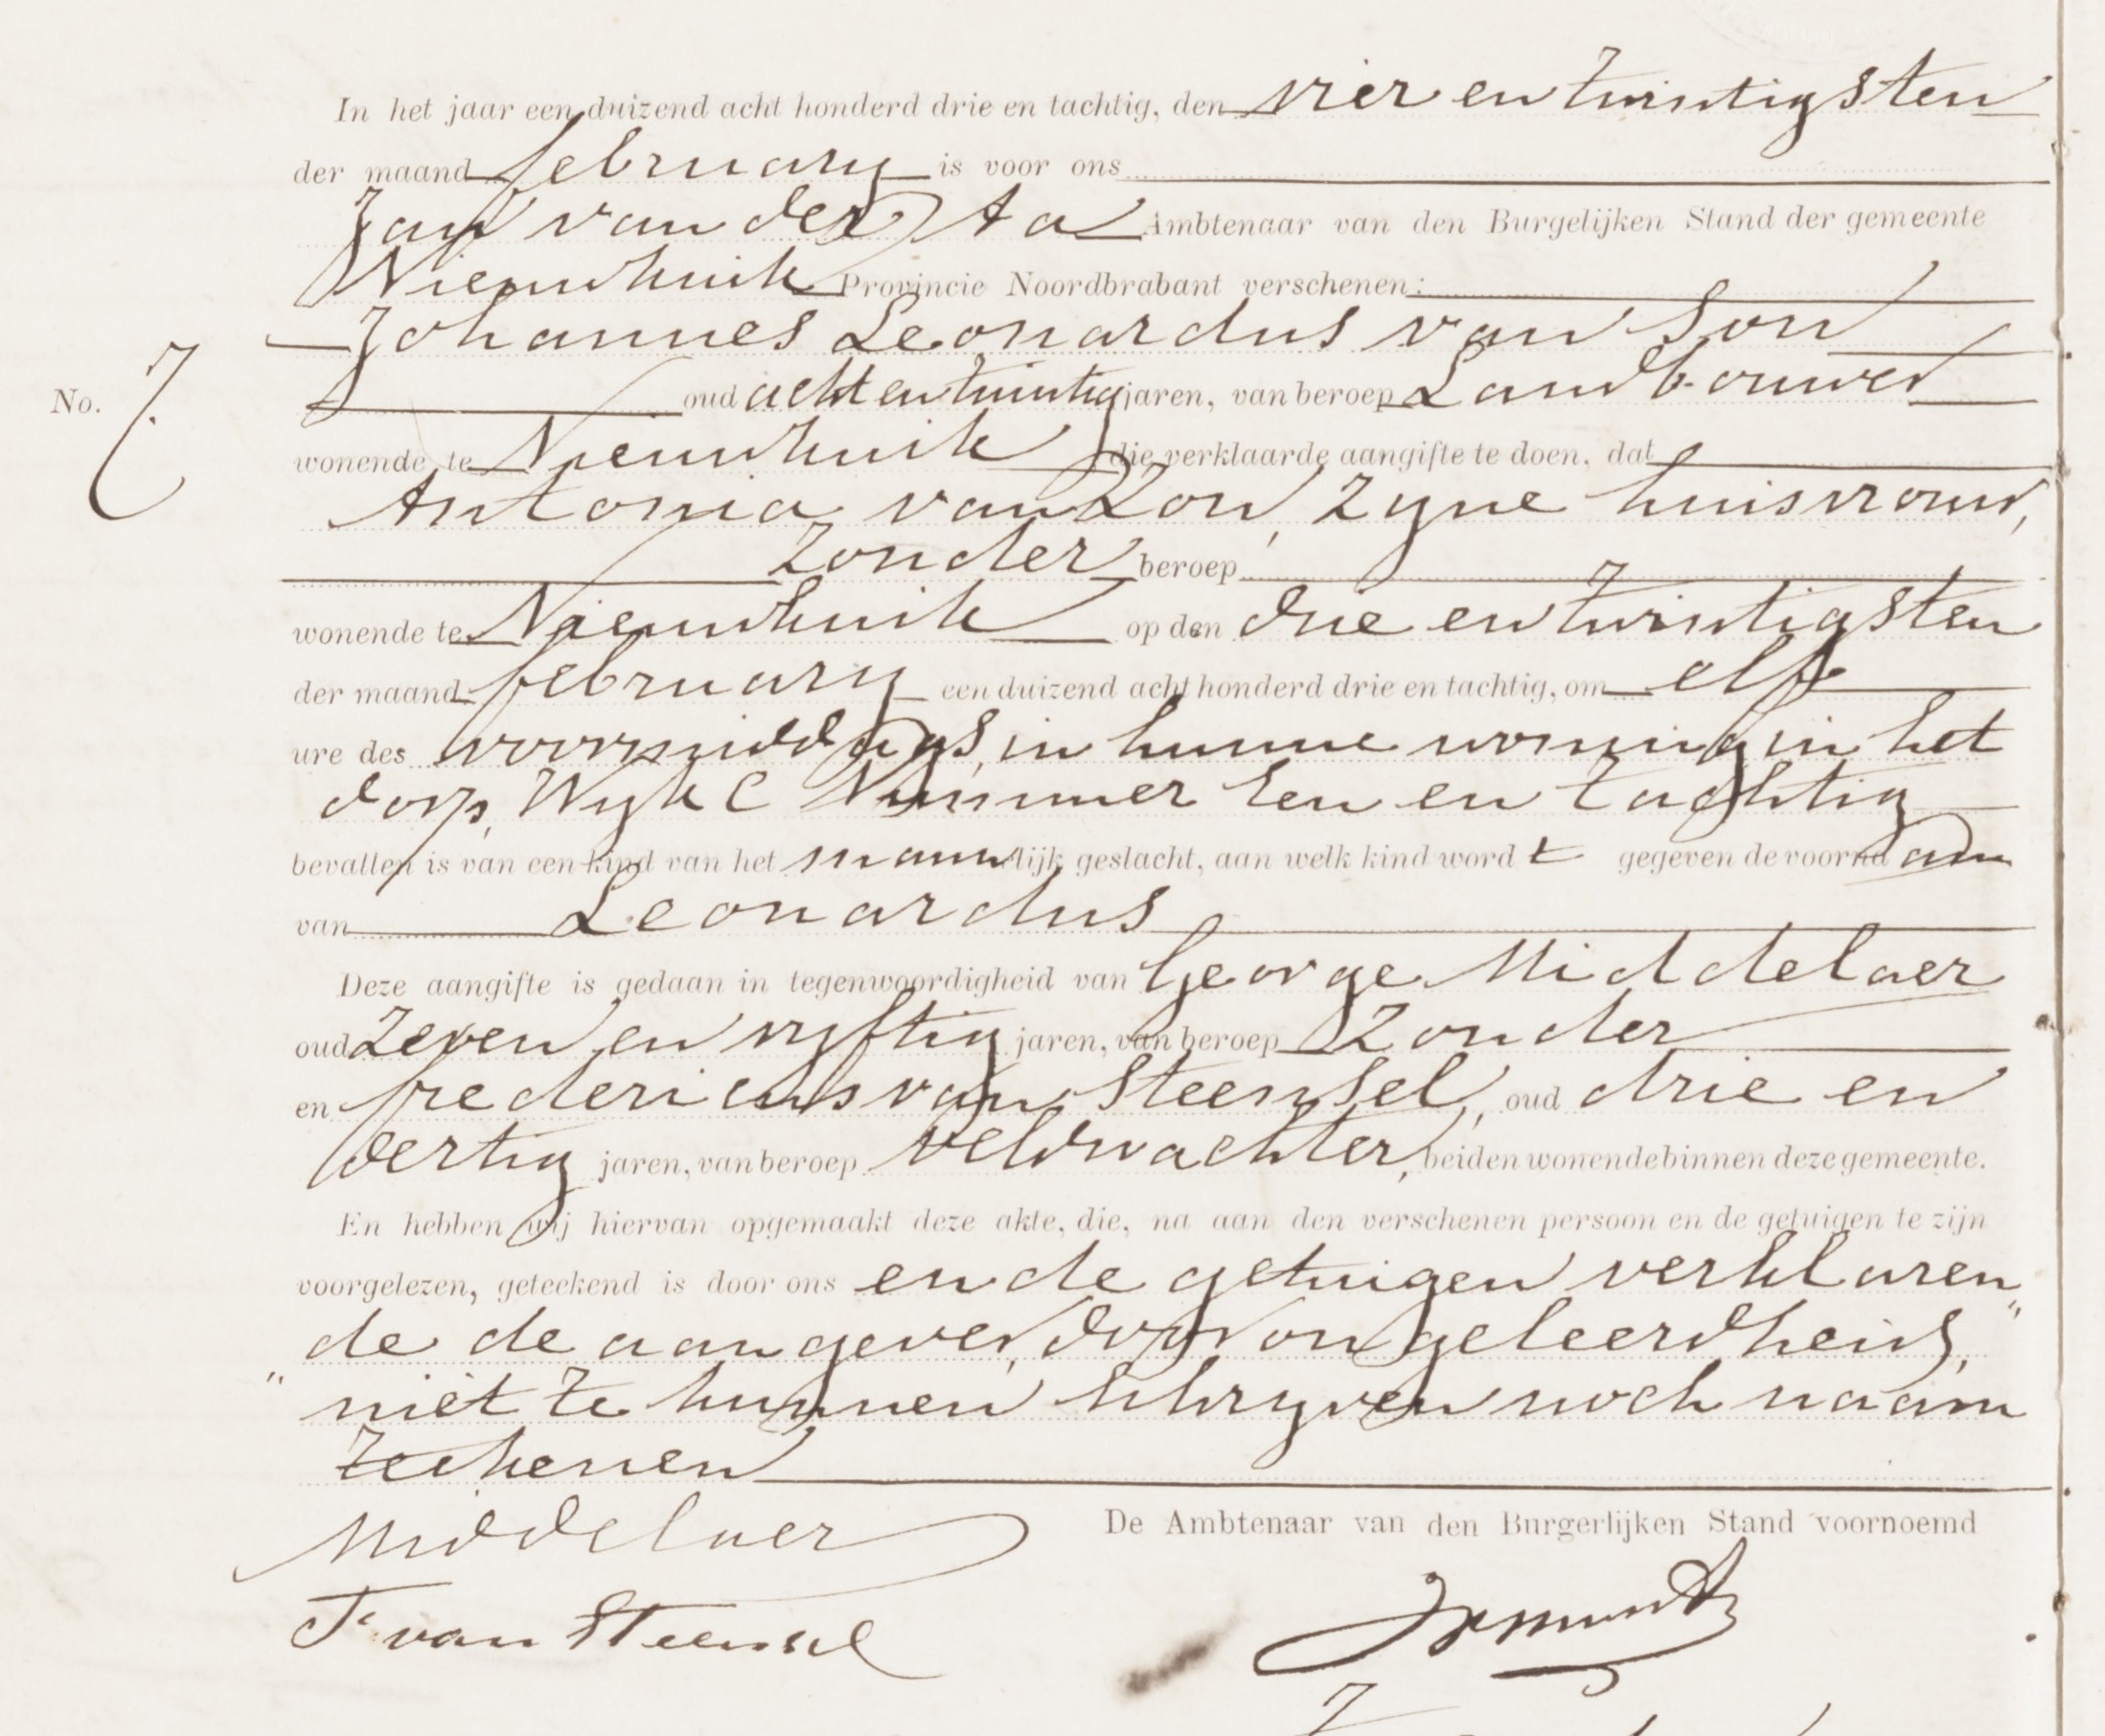 In het jaar een duizend acht honderd drie en tachtig, den vier en twintigsten
der maand february is voor ons
Jan van der Aa Ambtenaar van den Burgelijken Stand der gemeente
Nieuwkuik Provincie Noordbrabant verschenen:
Johannes Leonardus van Son
No. 7. oud acht en twintig jaren, van beroep Landbouwer
wonende te Nieuwkuik die verklaarde aangifte te doen, dat
Antonia van Zon, zyne huisvrouw,
zonder beroep
wonende te Nieuwkuik op den drie en twintigsten
der maand february een duizend acht honderd drie en tachtig, om elf
ure des voormiddags, in hunne woning in het
dorp, Wyk C Nummer een en tachtig
bevallen is van een kind van het mannelijk geslacht, aan welk kind wordt gegeven de voornaam
van Leonardus
Deze aangifte is gedaan in tegenwoordigheid van George Middelaer
oud zeven en vyftig jaren, van beroep zonder
en fredericus van Steensel, oud drie en
dertig jaren, van beroep veldwachter, beiden wonende binnen deze gemeente.
En hebben wij hiervan opgemaakt deze akte, die, na aan den verschenen persoon en de getuigen te zijn
voorgelezen, geteekend is door ons en de getuigen verklaren
de de aangever, door ongeleerdheid, "
" niet te kunnen schryven noch naam
teekenen
Middelaer
De Ambtenaar van den Burgerlijken Stand voornoemd
F. van Steensel